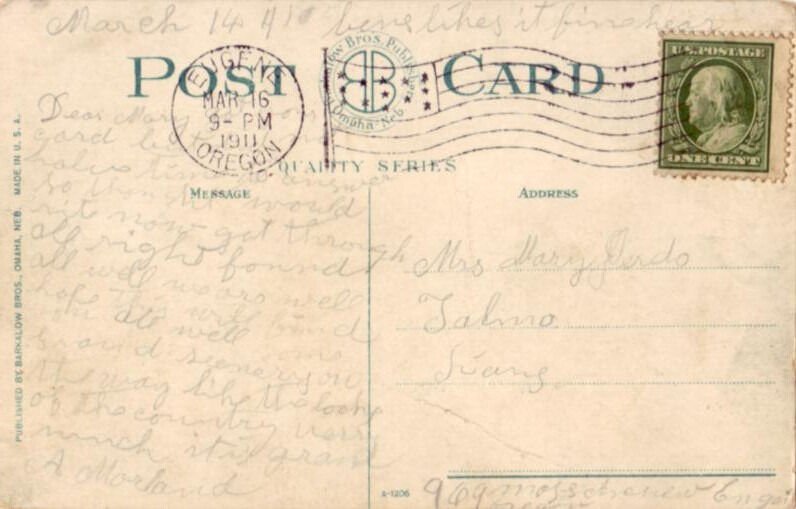 March 14 like's it fine hear
POST CARD
Barkalow Bros. Publishers
Omaha, Neb.
EUGENE
MAR 16
9- PM
1911
OREGON
U.S. POSTAGE
ONE CENT
QUALITY SERIES
MESSAGE
ADDRESS
Dear Mary
card
time to answer
so thought would
rit now got through
all right found
all well wears well
hope this will find
you all well
grand scenery on
the way like the looks
of the country very
much it is grand
A Morland
Mrs Mary
Talmo
Kans
969
A-1206
PUBLISHED BY BARKALOW BROS., OMAHA, NEB. MADE IN U.S.A.